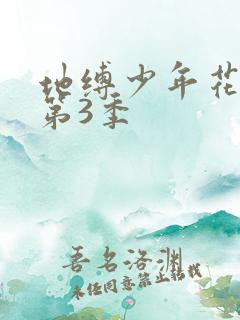 地缚少年花
第3季
吾名洛渊
未经同意禁止转载